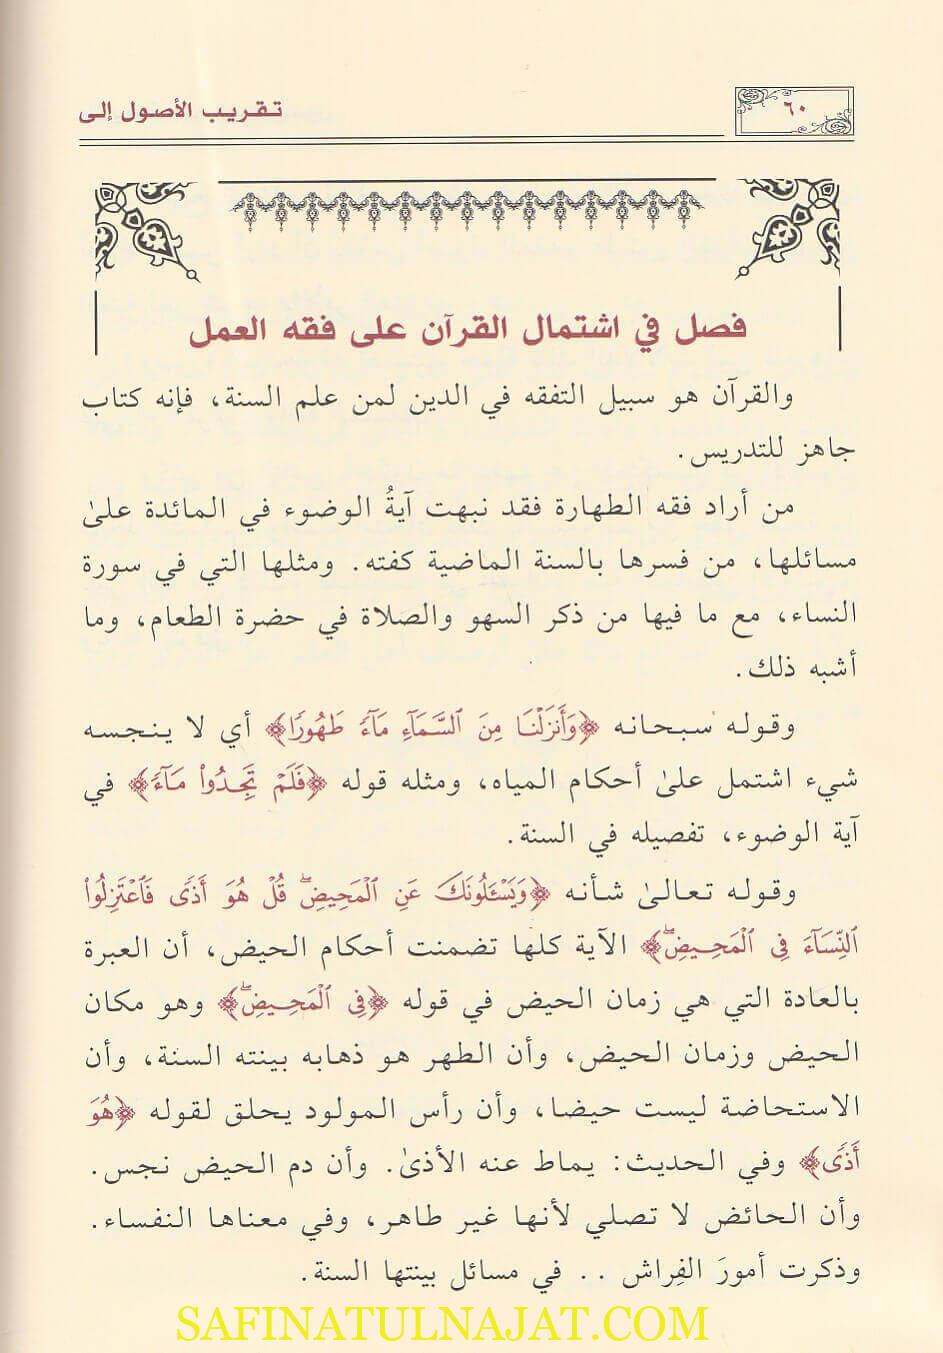 ٦٠
تقريب الأصول إلى
فصل في اشتمال القرآن على فقه العمل
والقرآن هو سبيل التفقه في الدين لمن علم السنة، فإنه كتاب
جاهز للتدريس.
من أراد فقه الطهارة فقد نبهت آيةُ الوضوء في المائدة علىٰ
مسائلها، من فسرها بالسنة الماضية كفته. ومثلها التي في سورة
النساء، مع ما فيها من ذكر السهو والصلاة في حضرة الطعام، وما
أشبه ذلك.
وقوله سبحانه ﴿وَأَنزَلْنَا مِنَ ٱلسَّمَآءِ مَآءً طَهُورًا﴾ أي لا ينجسه
شيء اشتمل علىٰ أحكام المياه، ومثله قوله ﴿فَلَمْ تَجِدُوا۟ مَآءً﴾ في
آية الوضوء، تفصيله في السنة.
وقوله تعالىٰ شأنه ﴿وَيَسْـَٔلُونَكَ عَنِ ٱلْمَحِيضِ ۖ قُلْ هُوَ أَذًى فَٱعْتَزِلُوا۟
ٱلنِّسَآءَ فِى ٱلْمَحِيضِ ۖ﴾ الآية كلها تضمنت أحكام الحيض، أن العبرة
بالعادة التي هي زمان الحيض في قوله ﴿فِى ٱلْمَحِيضِ ۖ﴾ وهو مكان
الحيض وزمان الحيض، وأن الطهر هو ذهابه بينته السنة، وأن
الاستحاضة ليست حيضا، وأن رأس المولود يحلق لقوله ﴿هُوَ
أَذًى﴾ وفي الحديث: يماط عنه الأذىٰ. وأن دم الحيض نجس.
وأن الحائض لا تصلي لأنها غير طاهر، وفي معناها النفساء.
وذكرت أمورَ الفِراش .. في مسائل بينتها السنة.
SAFINATULNAJAT.COM